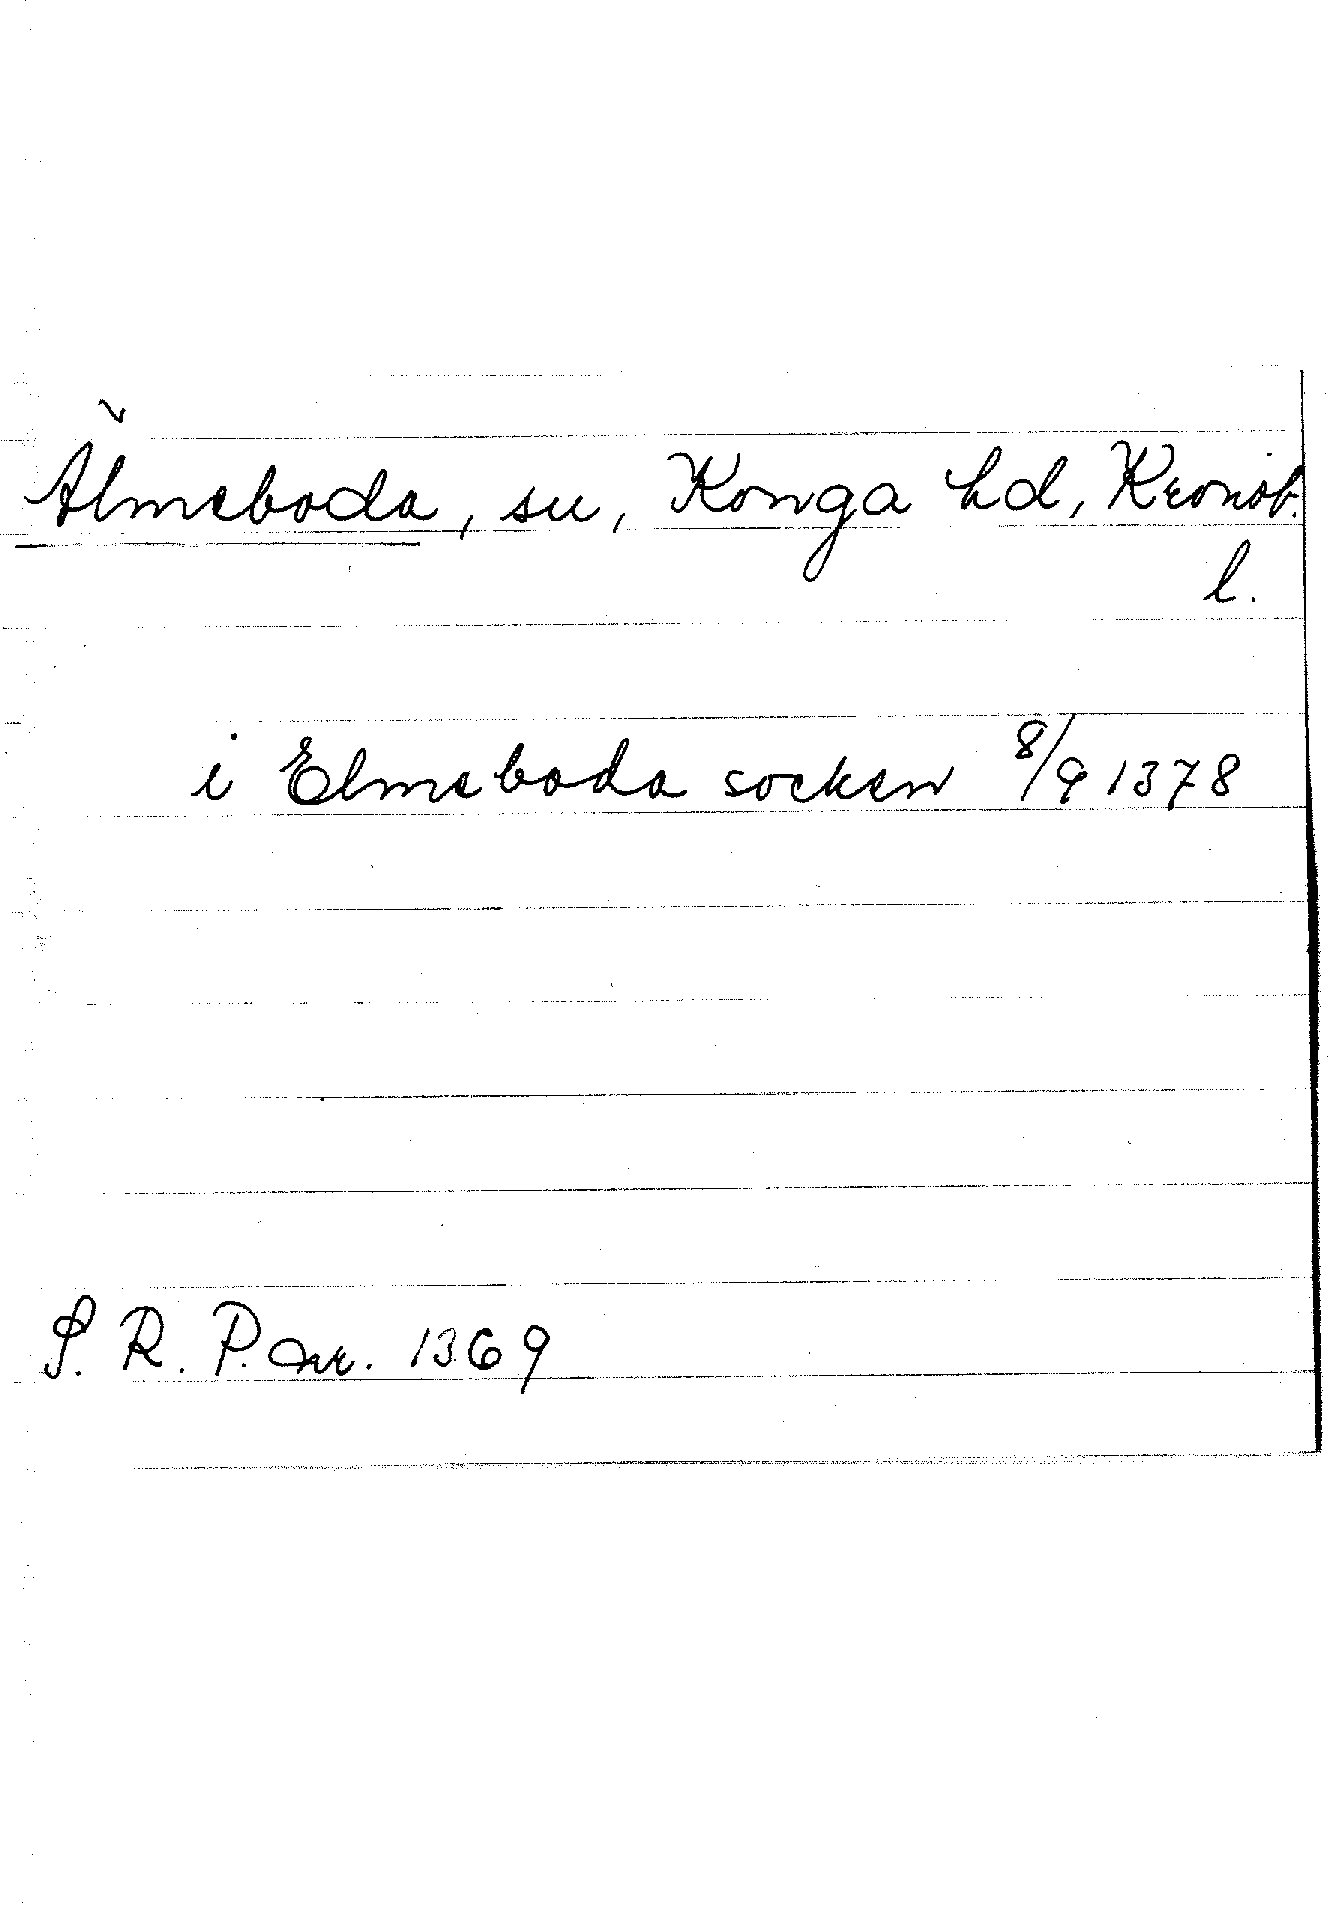 Älmeboda, sn, Konga hd, Kronob.
l.
i Elmeboda socken 8/9 1378
S. R. P. nr. 1369